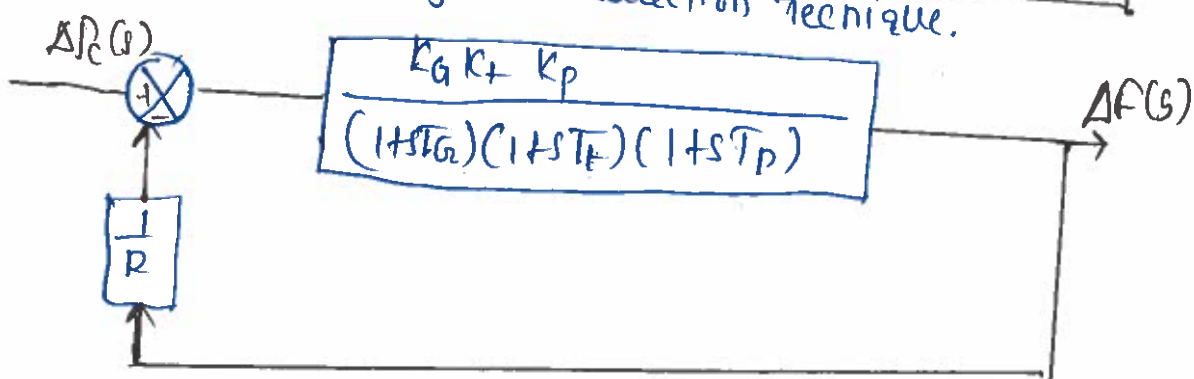 Tecnique.
ΔPc(s)
KG Kt Kp
(1+STG)(1+STt)(1+STp)
ΔF(s)
+
-
1
R